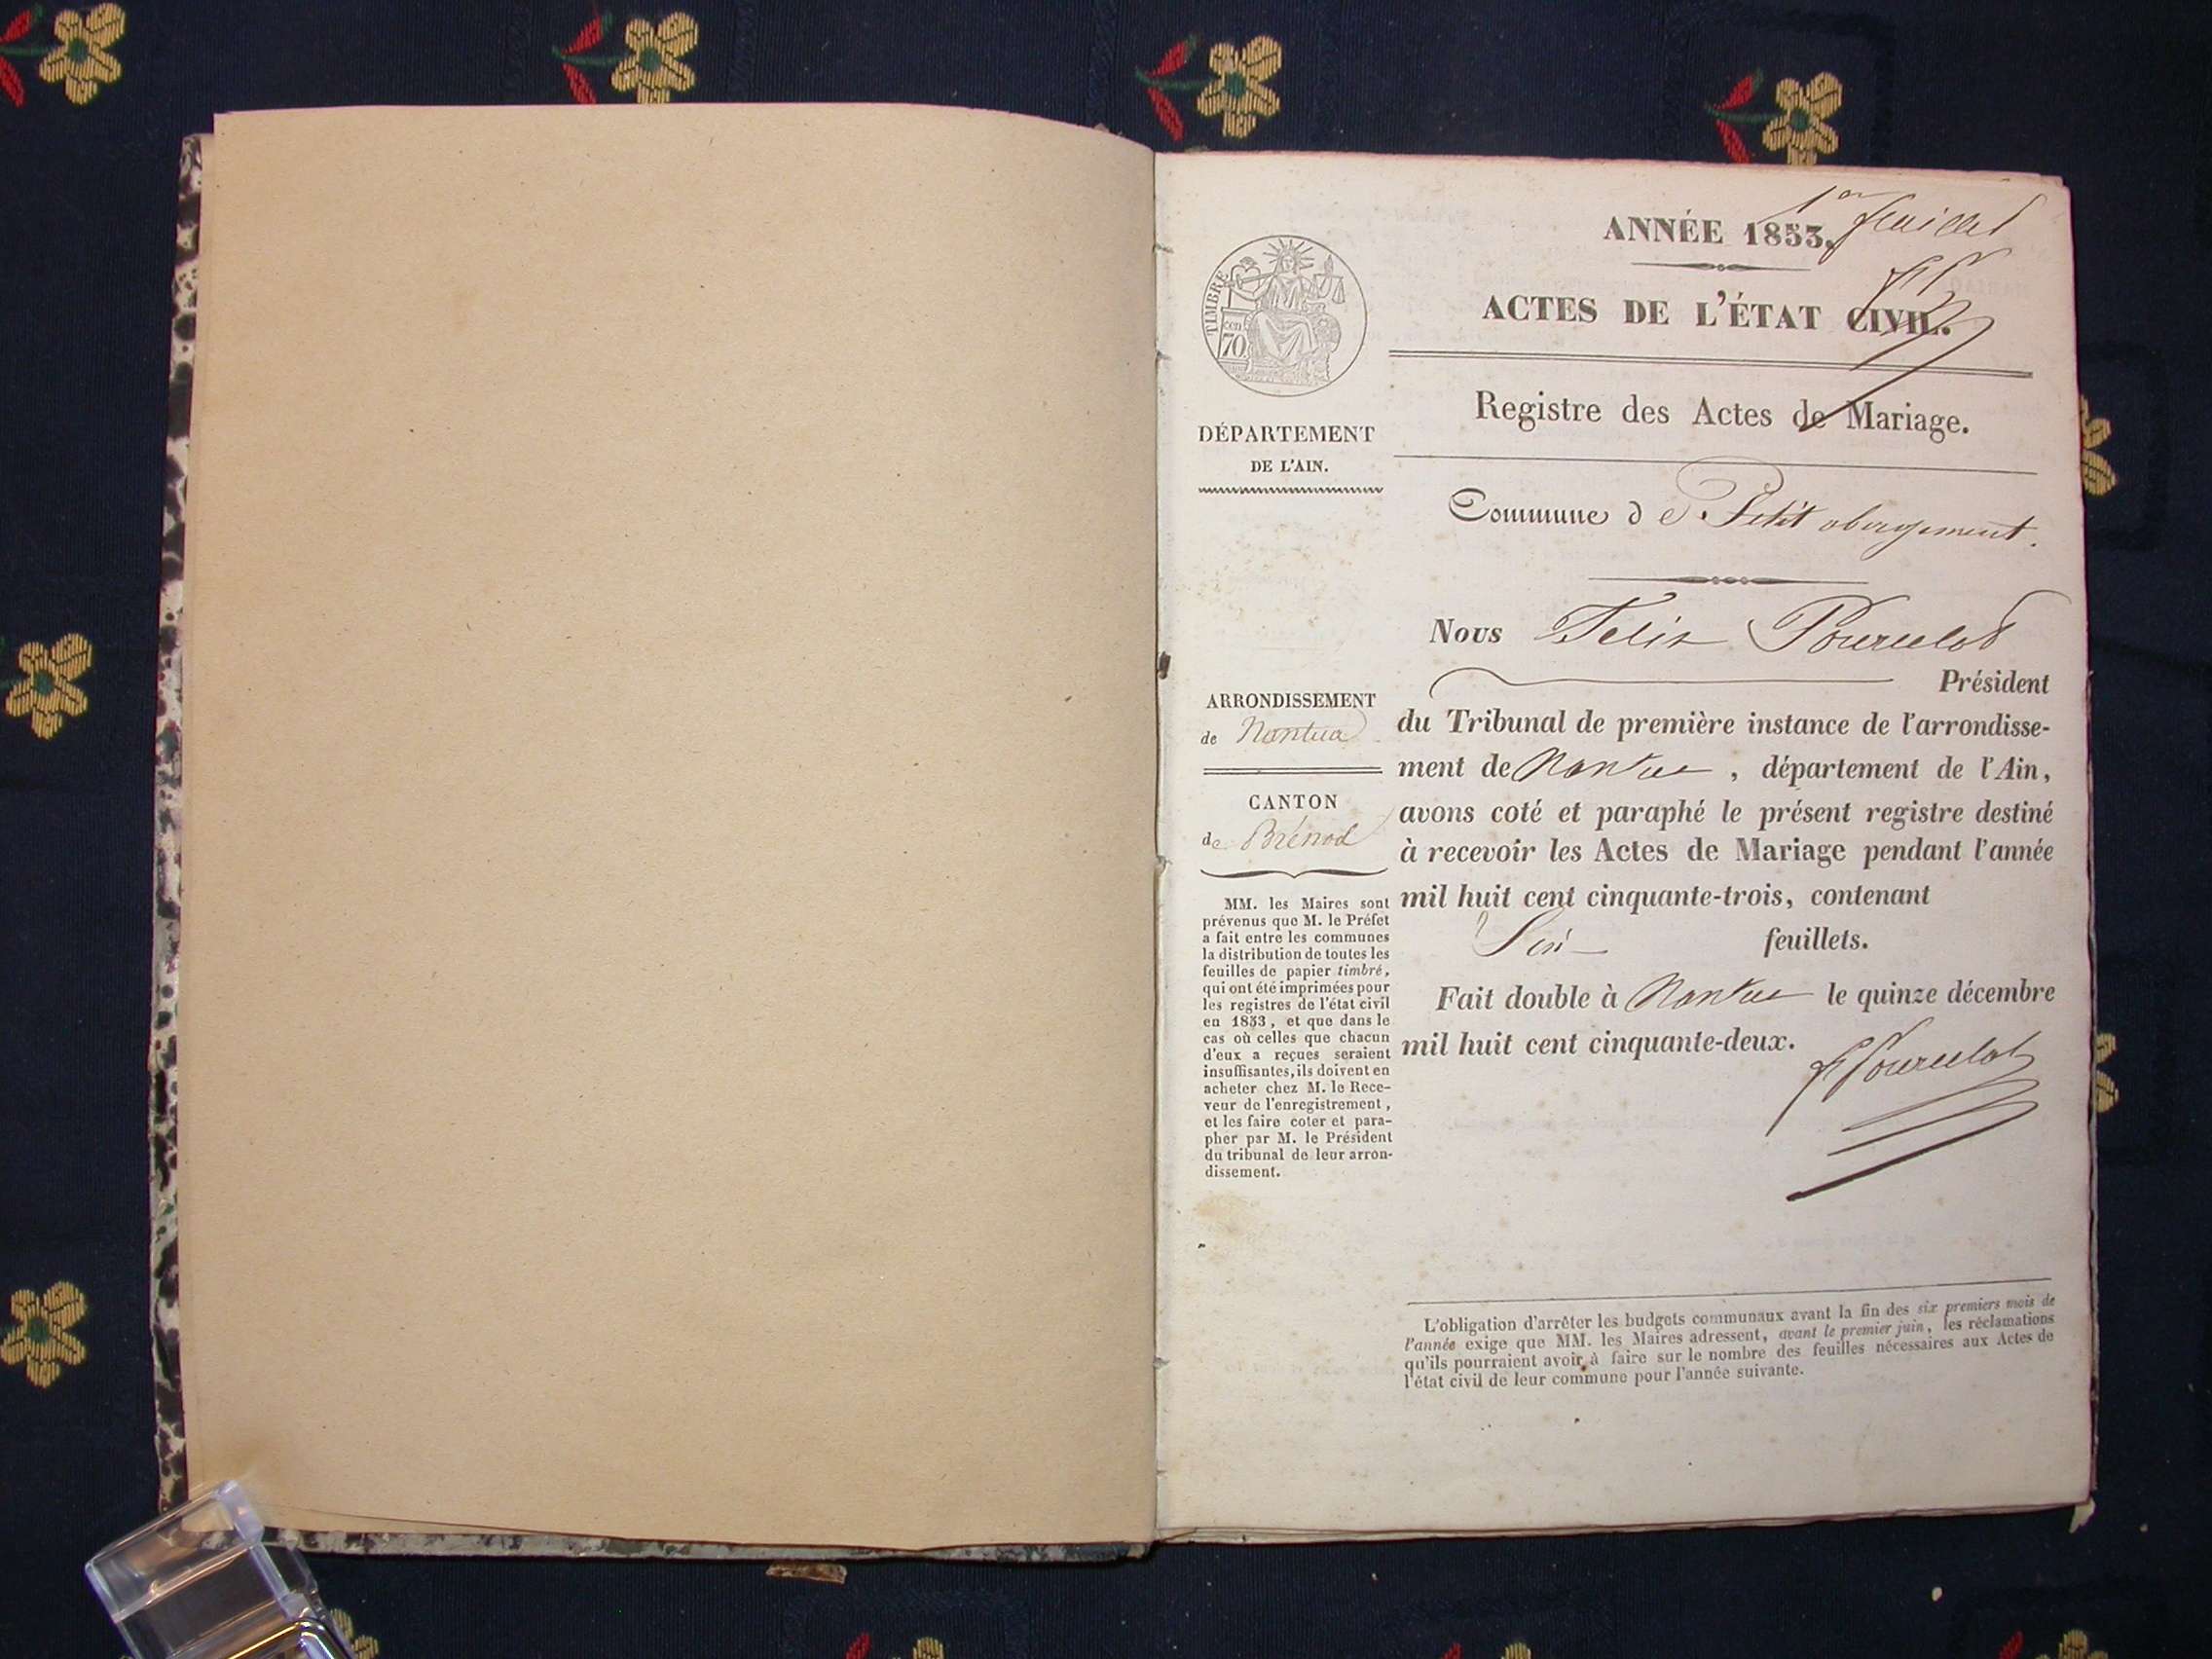 1er feuillet
ANNÉE 1853.
ACTES DE L'ÉTAT CIVIL.
Registre des Actes de Mariage.
TIMBRE
cen
70
DÉPARTEMENT
DE L'AIN.
Commune de Petit abergement.
Nous Félix Pourcelot
Président
du Tribunal de première instance de l'arrondisse-
ment de Nantua, département de l'Ain,
avons coté et paraphé le présent registre destiné
à recevoir les Actes de Mariage pendant l'année
mil huit cent cinquante-trois, contenant
Six feuillets.
Fait double à Nantua le quinze décembre
mil huit cent cinquante-deux.
FPourcelot
ARRONDISSEMENT
de Nantua
CANTON
de Brénod
MM. les Maires sont
prévenus que M. le Préfet
a fait entre les communes
la distribution de toutes les
feuilles de papier timbré,
qui ont été imprimées pour
les registres de l'état civil
en 1853, et que dans le
cas où celles que chacun
d'eux a reçues seraient
insuffisantes, ils doivent en
acheter chez M. le Rece-
veur de l'enregistrement,
et les faire coter et para-
pher par M. le Président
du tribunal de leur arron-
dissement.
L'obligation d'arrêter les budgets communaux avant la fin des six premiers mois de
l'année exige que MM. les Maires adressent, avant le premier juin, les réclamations
qu'ils pourraient avoir à faire sur le nombre des feuilles nécessaires aux Actes de
l'état civil de leur commune pour l'année suivante.